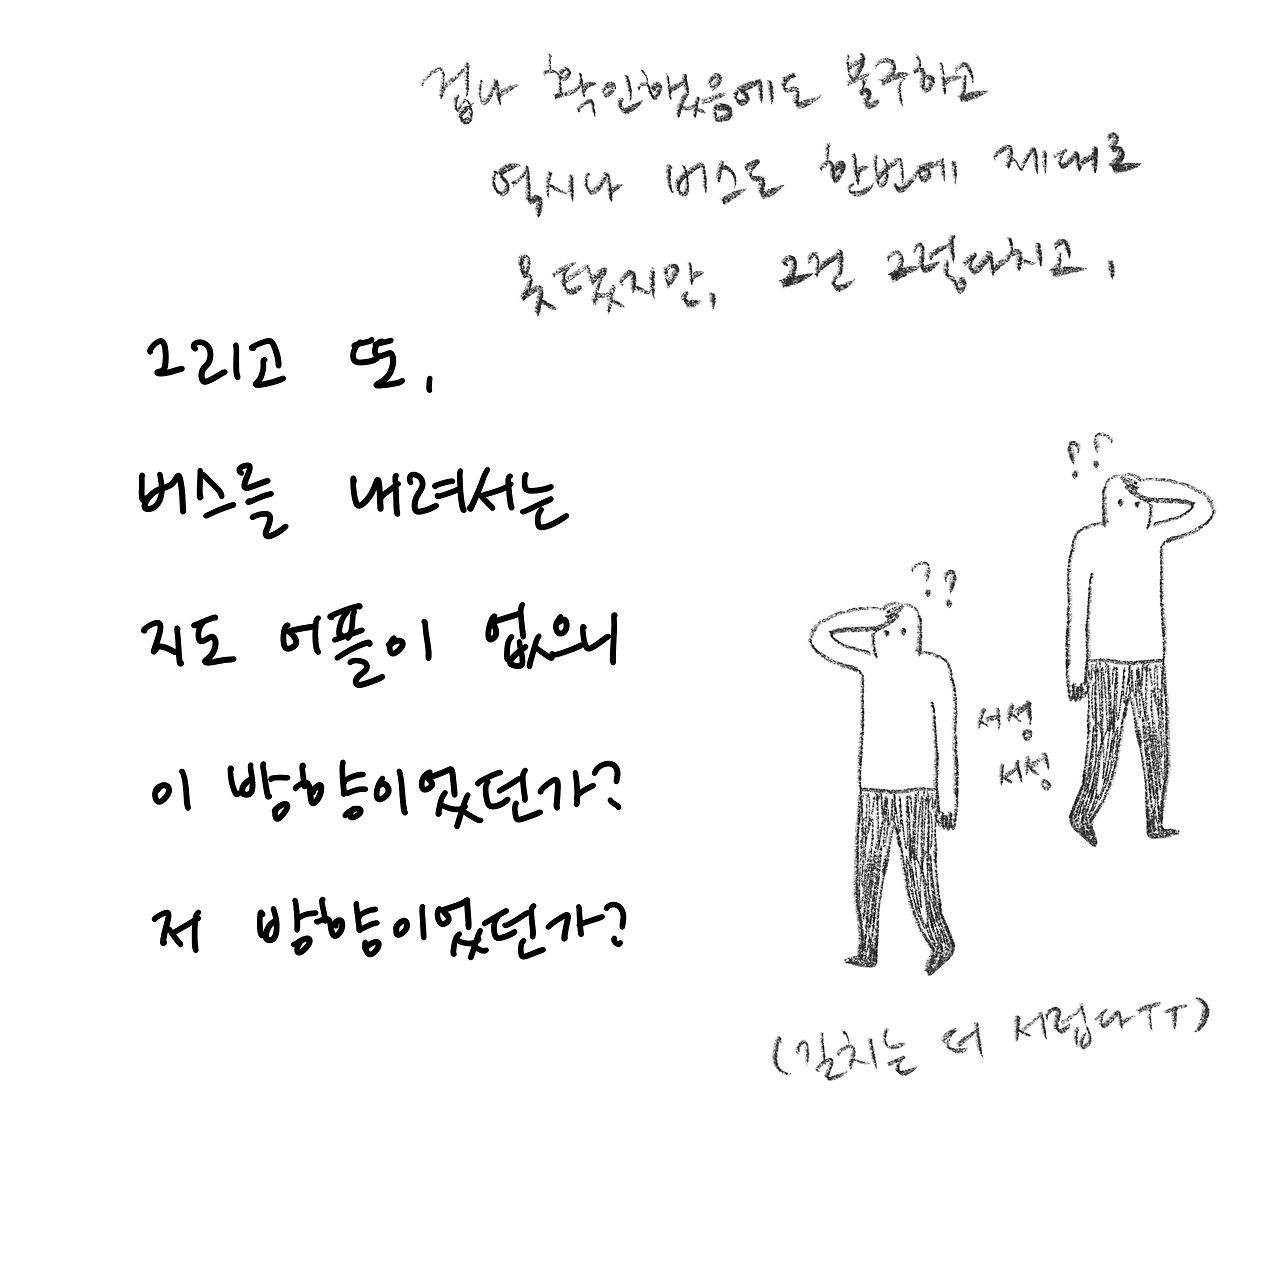 겁나 확인했음에도 불구하고
역시나 버스도 한번에 제대로
못탔지만, 그건 그렇다치고,
그리고 또,
버스를 내려서는
지도 어플이 없으니
이 방향이었던가?
저 방향이었던가?
??
??
서성
서성
(길치는 더 서럽다ㅜㅜ)